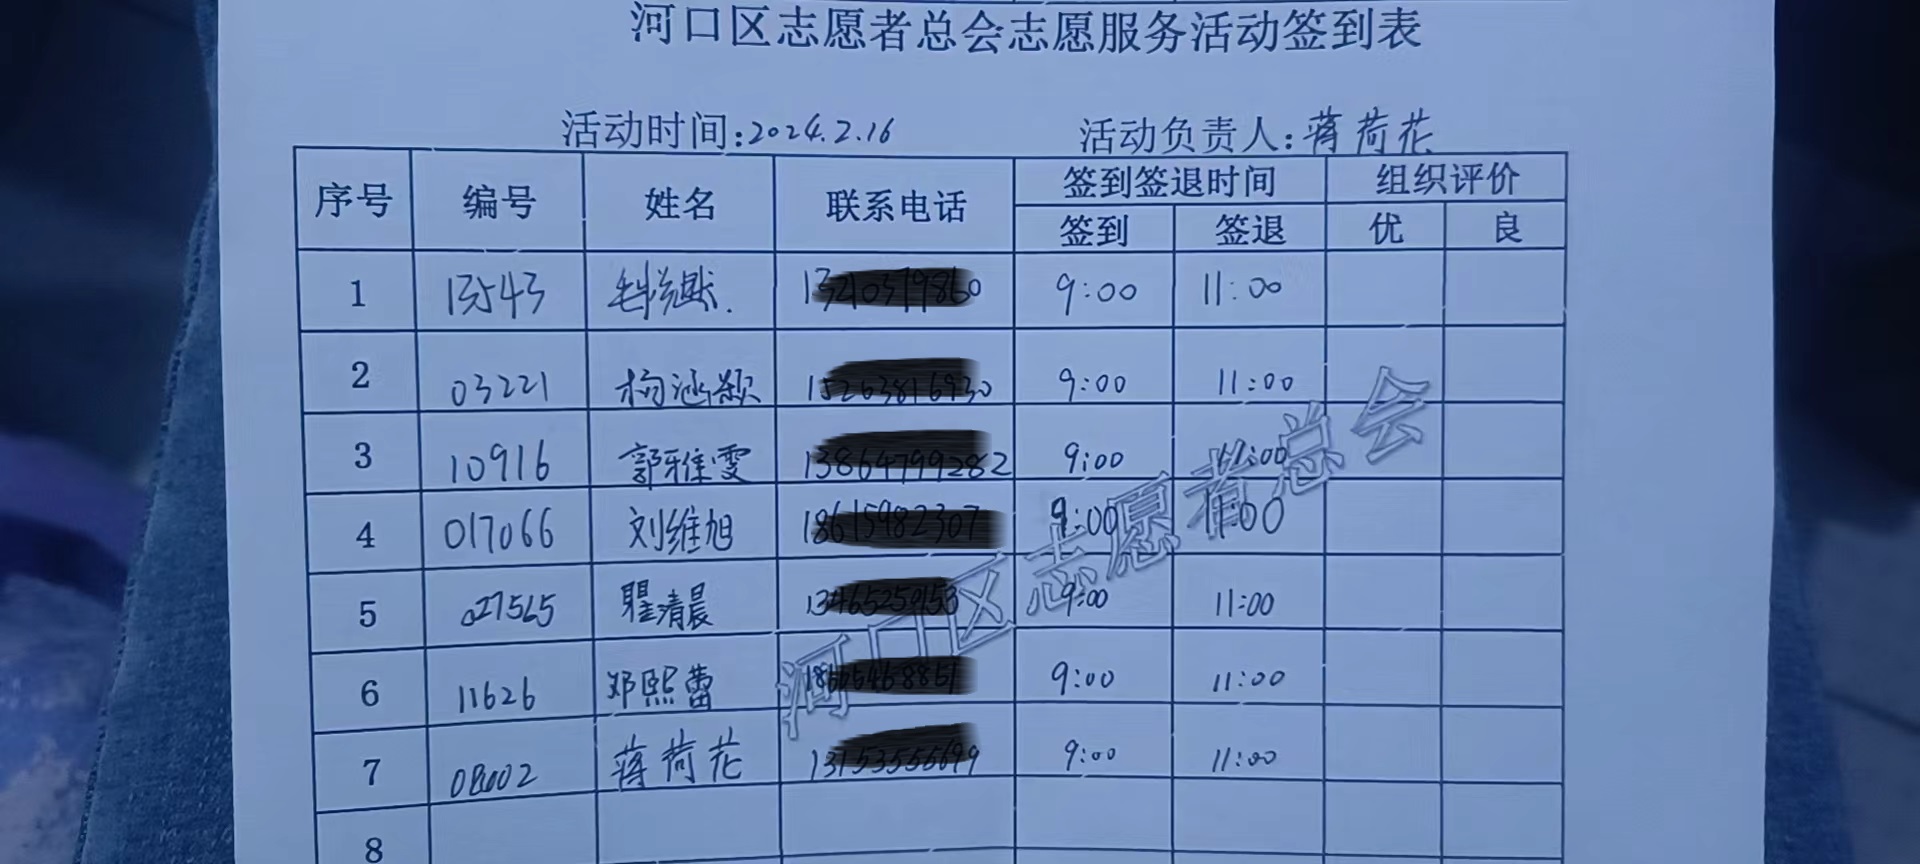 河口区志愿者总会志愿服务活动签到表
活动时间:2024.2.16 活动负责人:蒋荷花
序号 编号 姓名 联系电话 签到签退时间 组织评价
签到 签退 优 良
1 13543 9:00 11:00
2 03221 杨涵颖 9:00 11:00
3 10916 郭雅雯 9:00 11:00
4 017066 刘维旭 9:00 11:00
5 027565 清晨 9:00 11:00
6 11626 邓熙蕾 9:00 11:00
7 蒋荷花 9:00 11:00
8
河口区志愿者总会